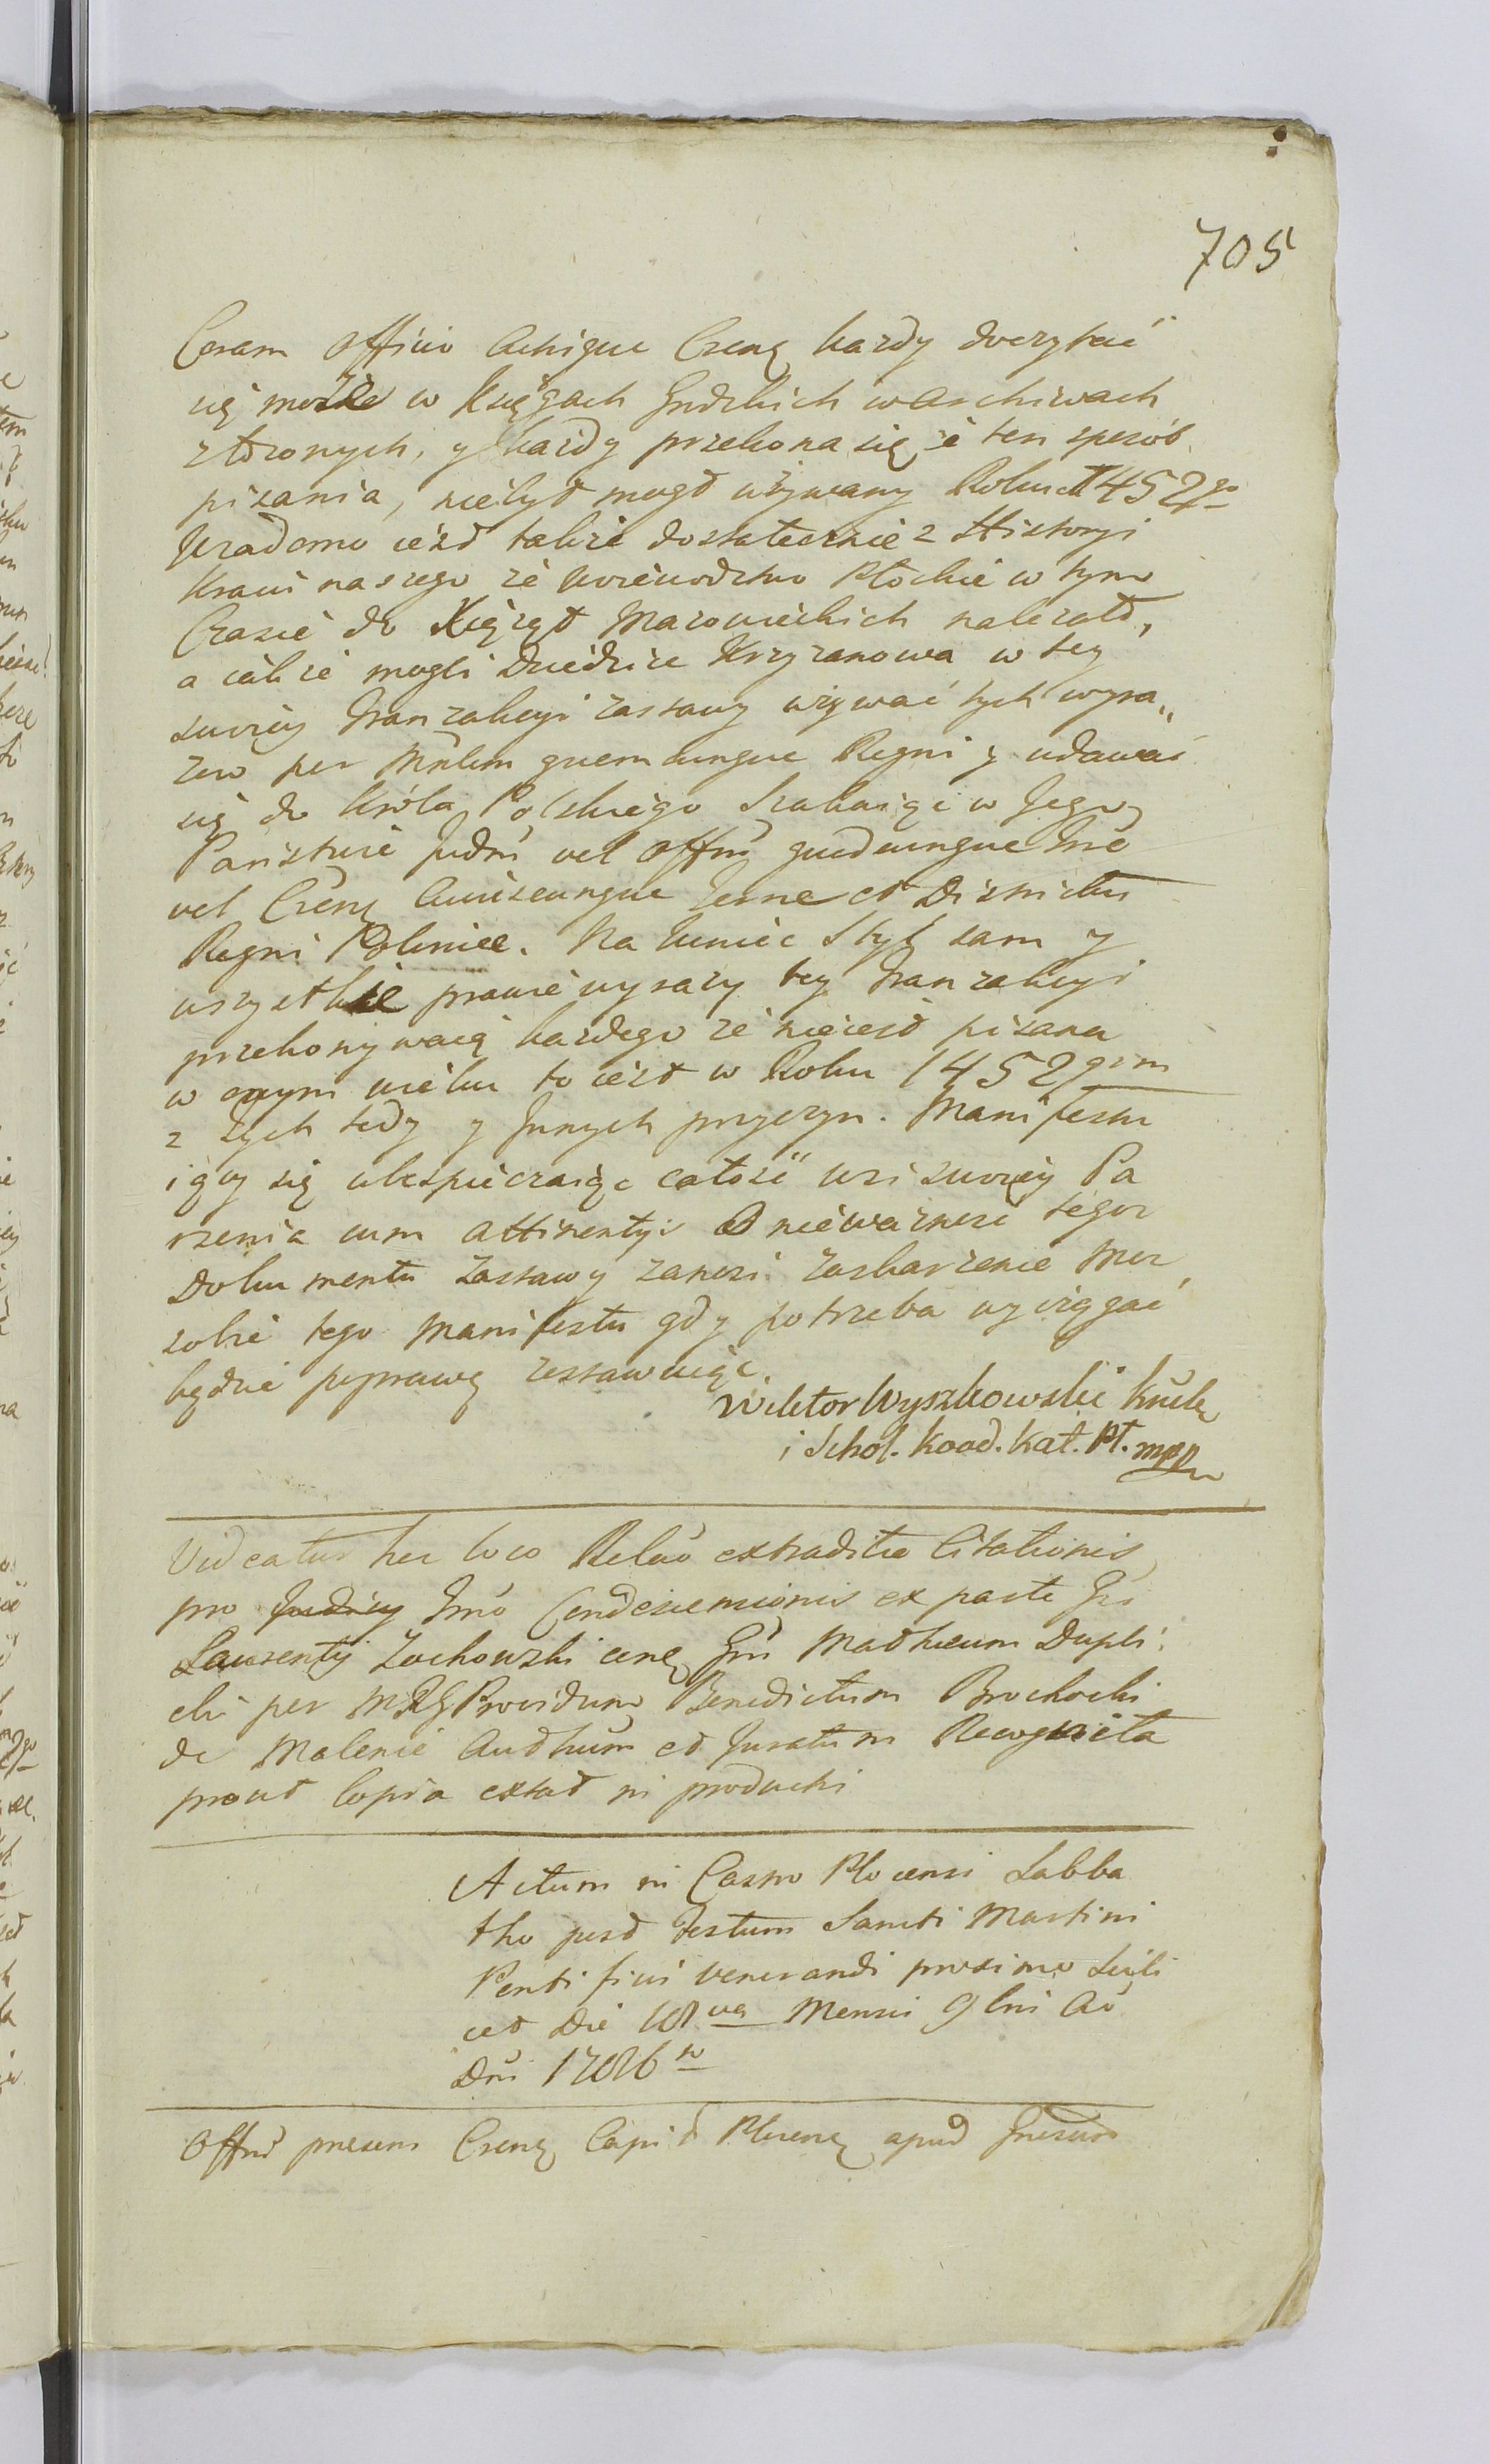 705
Coram Officio Actisque Csens. każdy doczytać
się może w Księgach Grdzkich w Archiwach
złożonych, y każdy przekona się, że ten sposób
pisania, niebył mógł używany Roku 1452go
Wiadomo iest także dostatecznie z Historyi
Kraiu naszego że Woiewodztwo Płockie w tym
Czasie do Xiążąt Mazowieckich należało,
a iakże mogli Dziedzice Krzyzanowa w tey
swoiey Tranzakcyi zastawy używać tych wyra„
zow per Mnlem quemcunque Regni y udawać
się do Króla Polskiego Szukaiąc w Jego
Panstwie Judm vel Offm quodcunque Tre
vel Csens Cuiuscunque Terrae et Districtus
Regni Poloniee. Na koniec Styl sam y
wszystkie prawie wyrazy tey Tranzakcyi
przekonywaią kazdego że nieiest pisana
w onym wieku to iest w Roku 1452gim
z tych tedy y Innych przyczyn. Manifestu
iący się ubespieczaiąc całość wsi swoiey Pa
rzenia cum Attinentys O nieważność tegoz
Dokumentu Zastawy zanosi zaskarżenie Moc
sobie tego Manifestu gdy potrzeba wyciągać
będzie poprawę zostawuiąc.
Wiktor Wyszkowski
i Schol. Koad. Kat. Pł. mpp
Videatur hic loco Relao extraditae Citationis
pro Judicy Imo Condescensionis ex parte Gsi
Laurenty Zochowski cenę Gm Mathaeum Dupli
cki per MRG Providum Benedictum Brochocki
de Malenie Authum et Juratum Recognita
prout Copia extat in producti
Actum in Castro Plocensi Sabba
tho post Festum Sancti Martini
Pontificis Venerandi proximo Scili
cet Die 18va Mensis 9bris Ao
Dni 1786to
Offm praesens Csens Capit Plocens apud